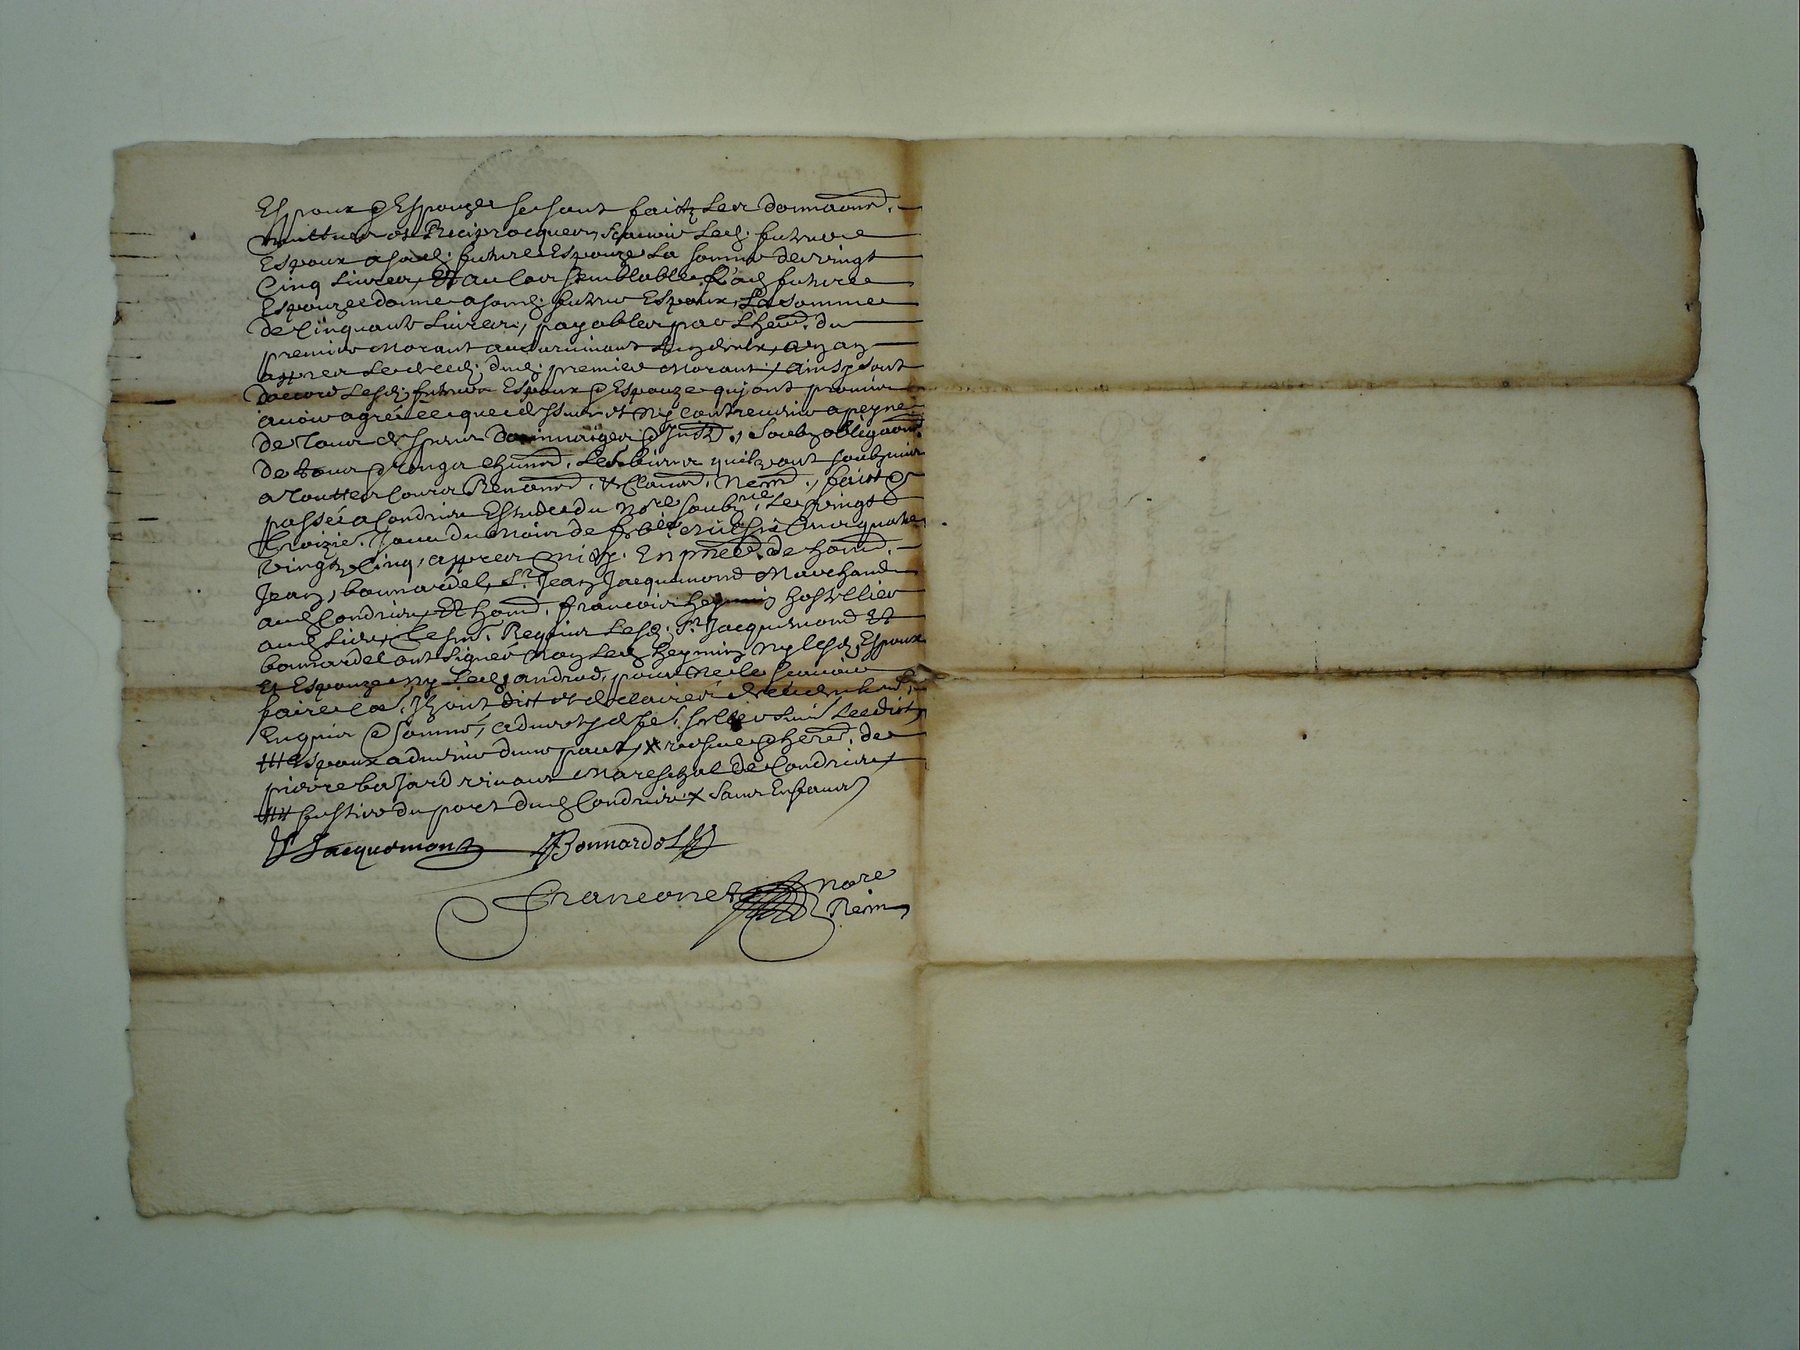 Espoux & Espouze se sont faictz les donnaons.
muttuelles et Reciprocques, scavoir led. futur
Espoux a sad. future Espouze La somme de vingt
Cinq Livres, Et au cas semblable Lad. future
Espouze donne a sond. futur Espoux, La somme
de Cinquante Livres, payables par Lherd. du
premier Morant au survivant
appres Le deced. dud. premier Morant, ainsy sont
daccord Lesd. futurs Espoux & Espouze quj ont promis
avoir agréé ce que dessus et Ny contrevenir a peyne
de Tous despens dommaiges & Soubz obligaon.
de tous Leurs biens quilz ont soubzmis
a Touttes Cours Renons. & Clauses. faict &
passé a Condrieu Estude du Nore. soubzné. Le vingt
Troizie. Jour du Mois de Mil Six Cens quatre
vingtz Cinq, appres Midy. En pnce. de hond.
Jean bonnardel, Sr. Jean Jacquemond Marchand
aud. Condrieu, Et hond. francois heymin hostellier
aud. Lieu, Tesms. Requis Lesd. Sr. Jacquemond Et
bonnardel ont signé Non Led. heymin Ny lesd. Espoux
Et Espouze Ny Led. pour Ne le scavoir
faire Ce Jlz ont dict et desclairé
Enquis & sommé,
Espoux advenir dune part, X vesve & here. de
pierre bajard vivant Mareschal de Condrieu
du port dud. Condrieu X sans Enfans
Jacquemont Bonnardel
Franconet nore